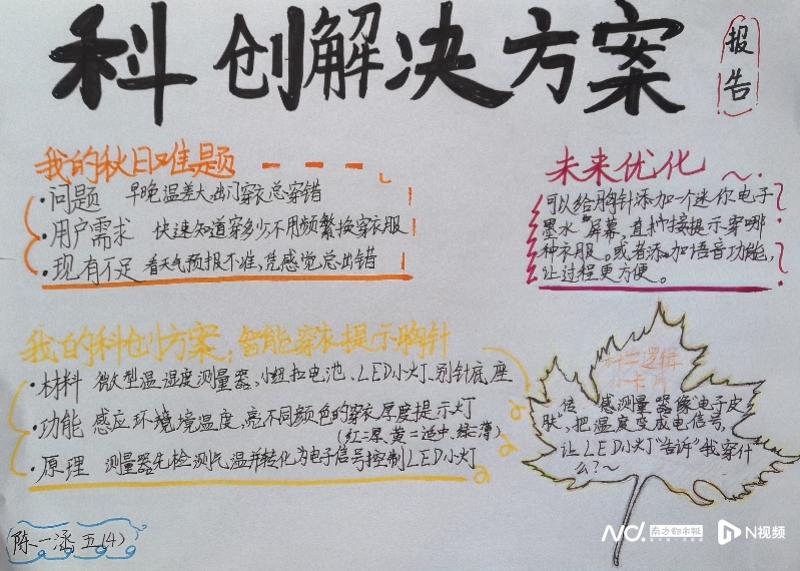 科创解决方案
报告
我的秋日难题
·问题 早晚温差大出门穿衣总穿错
·用户需求 快速知道穿多少,不用频繁换穿衣服
·现有不足 看天气预报不准,凭感觉总出错
未来优化
可以给胸针添加一个迷你电子
墨水屏幕,直接提示穿哪
种衣服。或者添加语音功能,
让过程更方便。
我的科创方案:智能穿衣提示胸针
·材料 微型温湿度测量器、小纽扣电池、LED小灯、别针底座
·功能 感应环境境温度,亮不同颜色的穿衣厚度提示灯
(红=厚,黄=适中,绿=薄)
·原理 测量器先检测气温并转化为电子信号控制LED小灯
科学逻辑
小卡片
传感测量器像电子皮
肤,把温度变成电信号,
让LED小灯"告诉"我穿什
么?~
陈一涵 五(4)
南方都市报
N视频